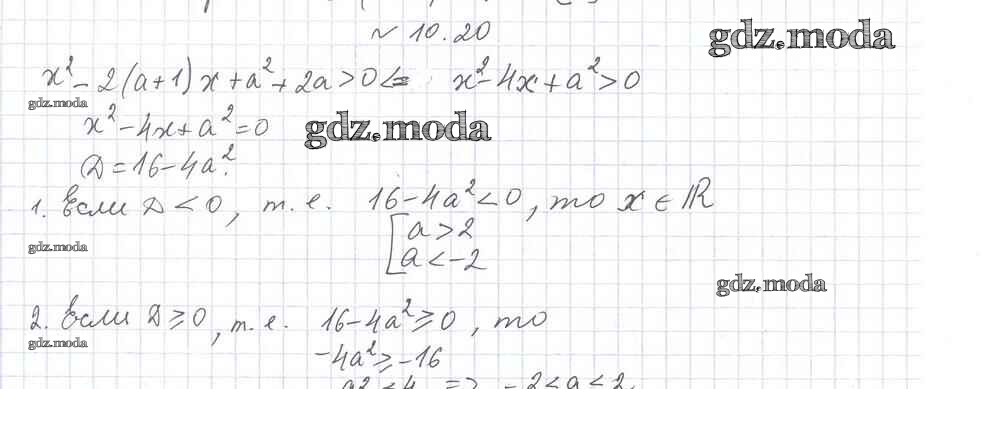 ~ 10.20
gdz.moda
x² - 2(a+1)x + a² + 2a > 0 <= x² - 4x + a² > 0
gdz.moda
x² - 4x + a² = 0
gdz.moda
D = 16 - 4a².
1. Если D < 0, т.е. 16 - 4a² < 0, то x ∈ ℝ
[ a > 2
a < -2
gdz.moda
gdz.moda
2. Если D ≥ 0, т.е. 16 - 4a² ≥ 0, то
gdz.moda
-4a² ≥ -16
a² ≤ 4 => -2 < a < 2.